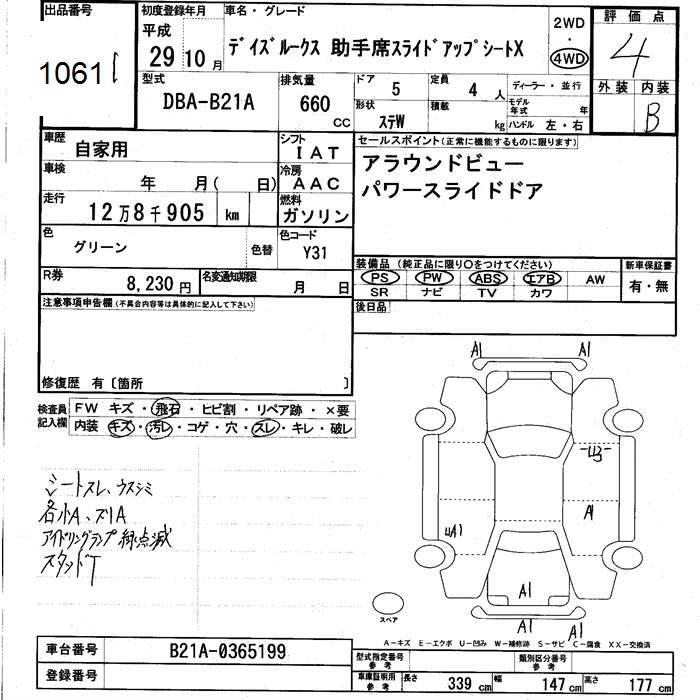 出品番号
10611
初度登録年月
平成
29 10 月
車名・グレード
デイズルークス 助手席スライドアップシートX
2WD
・
4WD
評価点
4
外装 内装
B
型式
DBA-B21A
排気量
660
CC
ドア
5
定員
4 人
形状
ステW
積載
kg
ディーラー・並行
モデル年式 年
ハンドル 左・右
車歴
自家用
シフト
IAT
車検
年 月( 日)
冷房
AAC
走行
12万8千905 km
燃料
ガソリン
色
グリーン
色替
色コード
Y31
R券
8,230 円
名変通知期限
月 日
セールスポイント(正常に機能するものに限ります)
アラウンドビュー
パワースライドドア
装備品 (純正品に限り○をつけてください)
PS PW ABS エアB AW
SR ナビ TV カワ
新車保証書
有・無
後日品
注意事項申告欄(不具合内容等は具体的に記入して下さい)
修復歴 有〔箇所 〕
検査員
記入欄
FW キズ・飛石・ヒビ割・リペア跡・×要
内装 キズ・汚レ・コゲ・穴・スレ・キレ・破レ
シートスレ、ウスシミ
各小A、スリA
アイドリングランプ 緑点滅
スタッドT
A1 A1
U3
A1
UA1
A1
A1 A1
スペア
A-キズ E-エクボ U-凹み W-補修跡 S-サビ C-腐食 XX-交換済
車台番号
B21A-0365199
登録番号
型式指定番号
参考
類別区分番号
参考
車庫証明用
参考
長さ 339 cm 幅 147 cm 高さ 177 cm